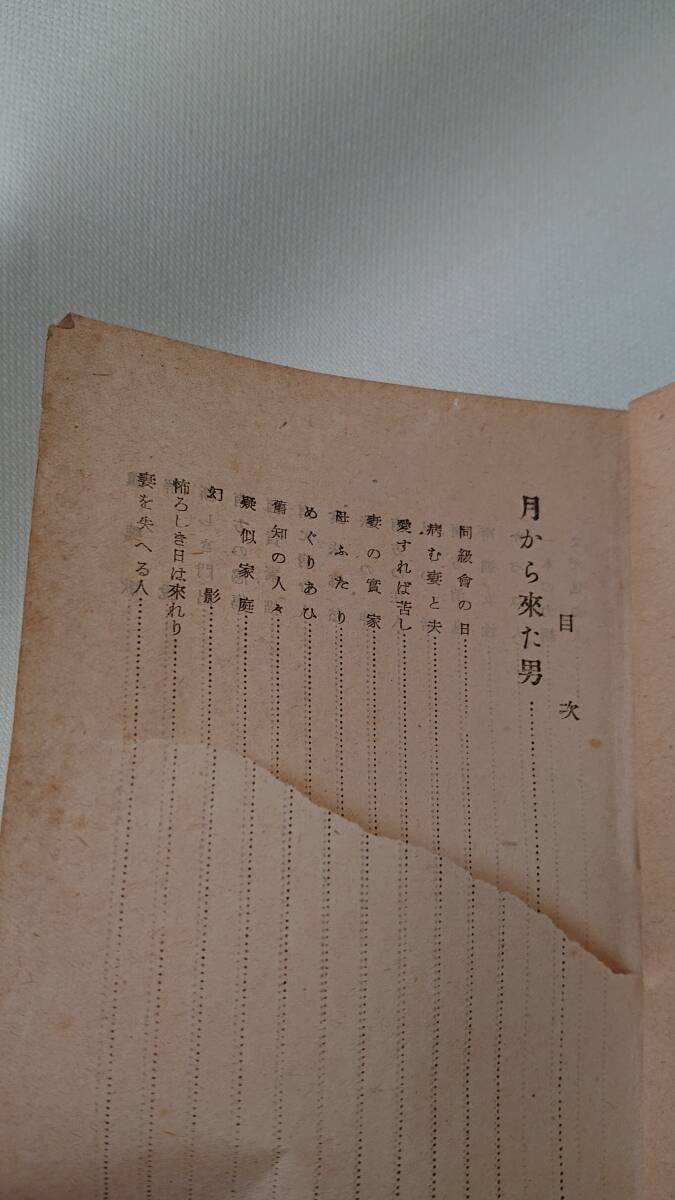 目次
月から來た男
同級會の日
病む妻と夫
愛すれば苦し
妻の實家
母ふたり
めぐりあひ
舊知の人々
疑似家庭
幻影
怖ろしき日は來れり
妻を失へる人